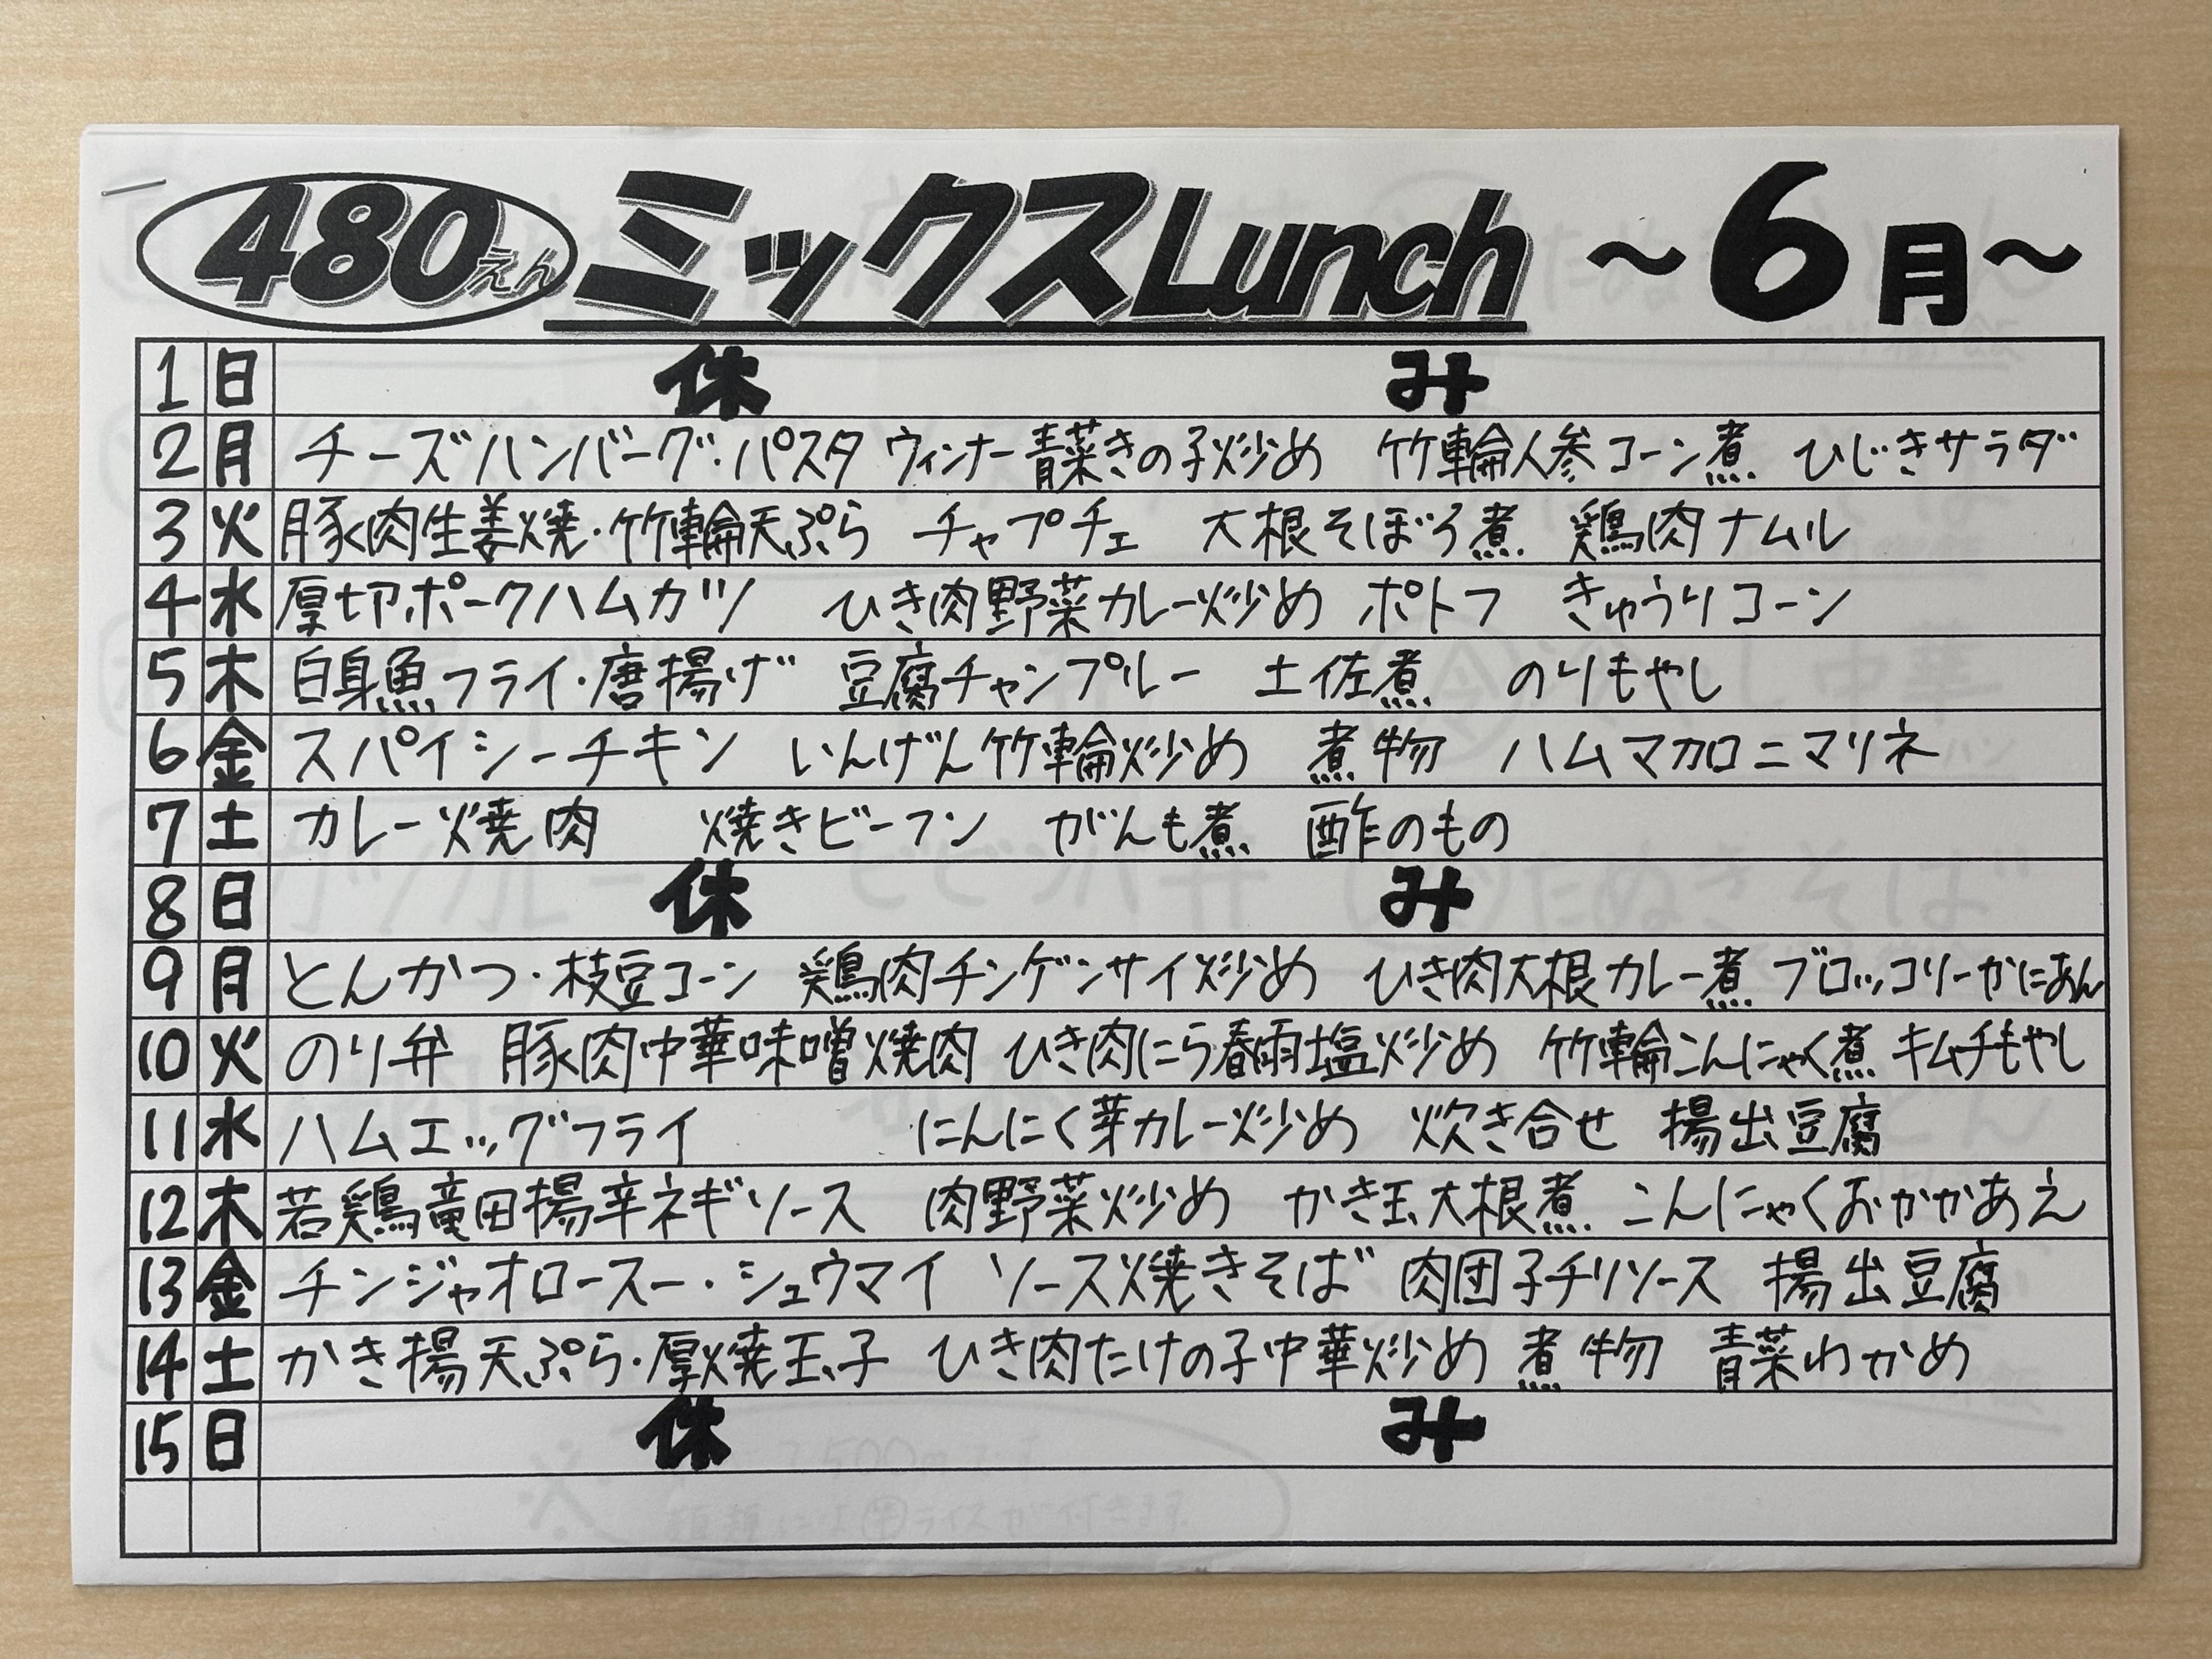 480えん ミックスLunch ～6月～
1 日 休み
2 月 チーズハンバーグ・パスタ ウィンナー青菜きの子炒め 竹輪人参コーン煮 ひじきサラダ
3 火 豚肉生姜焼・竹輪天ぷら チャプチェ 大根そぼろ煮 鶏肉ナムル
4 水 厚切ポークハムカツ ひき肉野菜カレー炒め ポトフ きゅうりコーン
5 木 白身魚フライ・唐揚げ 豆腐チャンプルー 土佐煮 のりもやし
6 金 スパイシーチキン いんげん竹輪炒め 煮物 ハムマカロニマリネ
7 土 カレー焼肉 焼きビーフン がんも煮 酢のもの
8 日 休み
9 月 とんかつ・枝豆コーン 鶏肉チンゲンサイ炒め ひき肉大根カレー煮 ブロッコリーかにあん
10 火 のり弁 豚肉中華味噌焼肉 ひき肉にら春雨塩炒め 竹輪こんにゃく煮 キムチもやし
11 水 ハムエッグフライ にんにく芽カレー炒め 炊き合せ 揚出豆腐
12 木 若鶏竜田揚辛ネギソース 肉野菜炒め かき玉大根煮 こんにゃくおかかあえ
13 金 チンジャオロースー・シュウマイ ソース焼きそば 肉団子チリソース 揚出豆腐
14 土 かき揚天ぷら・厚焼玉子 ひき肉たけの子中華炒め 煮物 青菜わかめ
15 日 休み